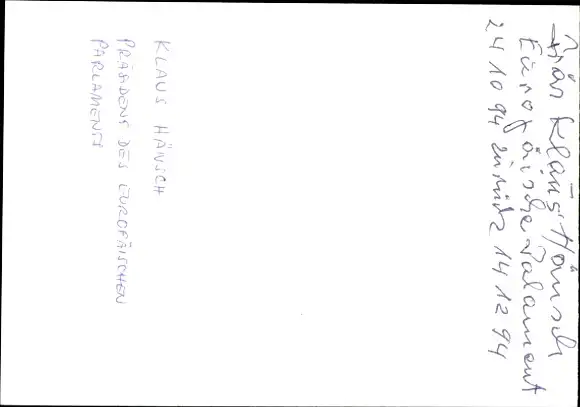 für Klaus Hänsch
Europäische Palament
24 10 94 zurück 14 12 94
KLAUS HÄNSCH
PRÄSIDENT DES EUROPÄISCHEN
PARLAMENTS